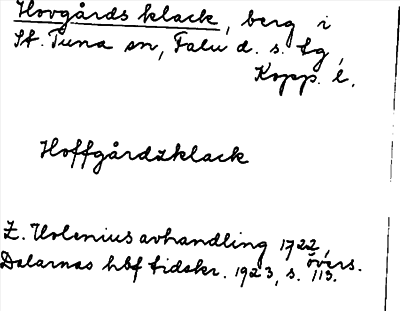 Hovgårds klack, berg i
St. Tuna sn, Falu d. s. tg,
Kopp. l.
Hoffgårdzklack
Z. Holenius avhandling 1722,
Dalarnas hbf tidskr. 1923, övers. s. 113.